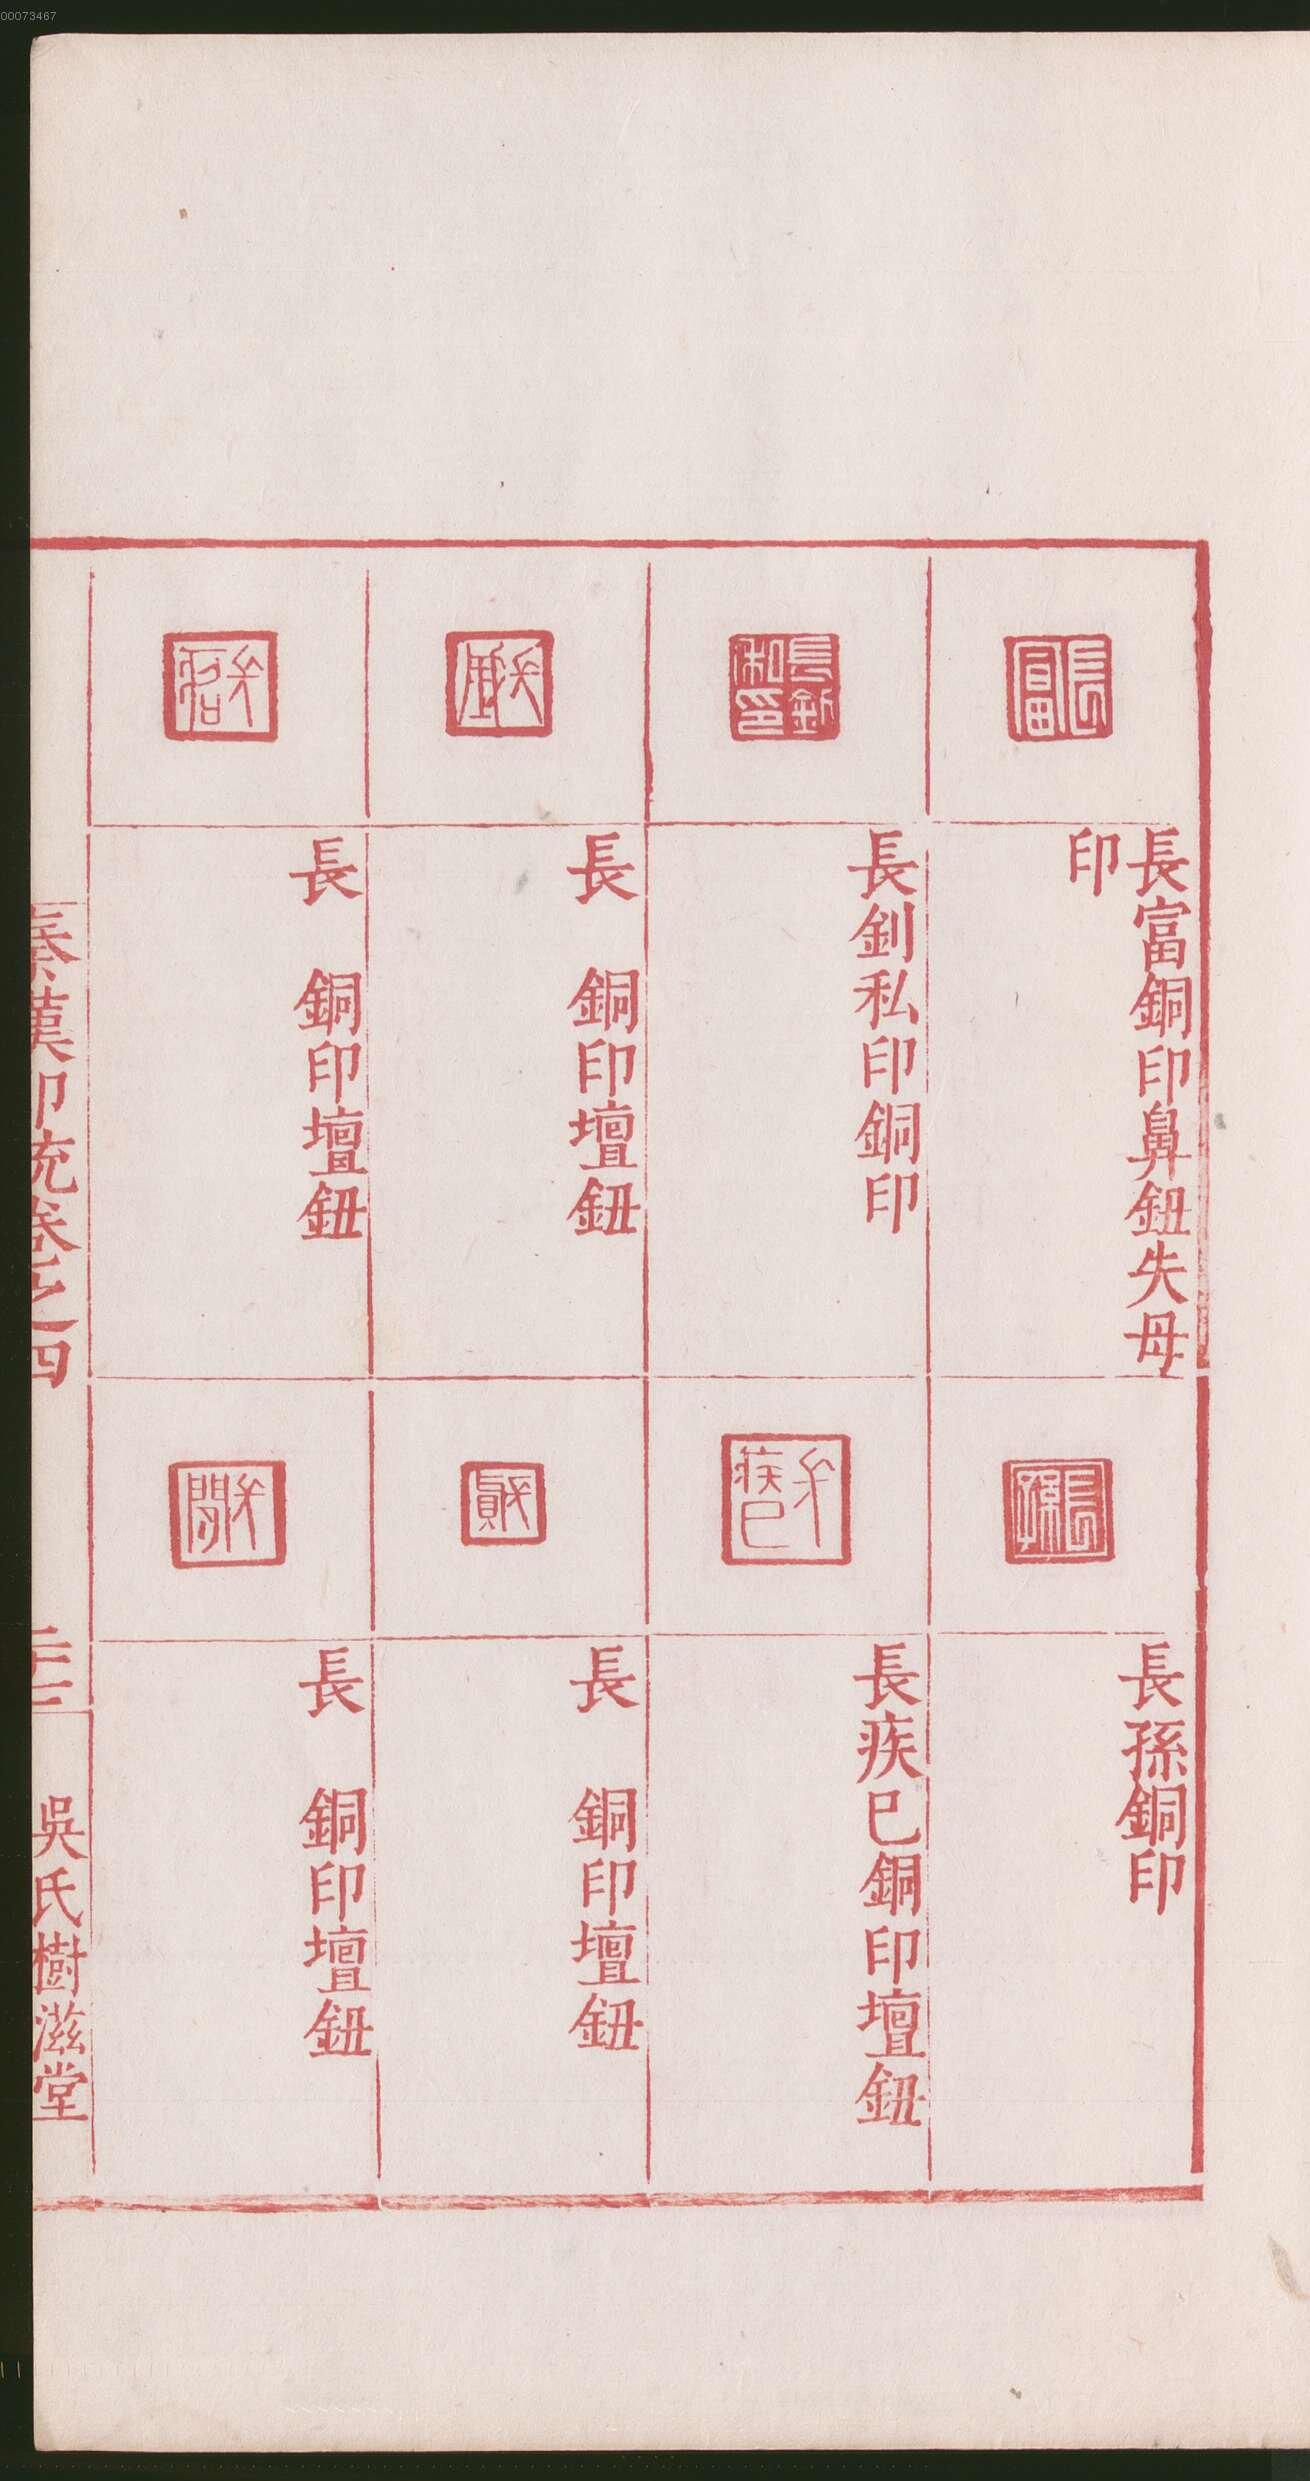 00073467
長富
長富銅印鼻鈕失母
印
長孫
長孫銅印
長釗私印
長釗私印銅印
疾已
長疾已銅印壇鈕
長　銅印壇鈕
長　銅印壇鈕
長　銅印壇鈕
長　銅印壇鈕
秦漢印統卷之四
二十三
吳氏樹滋堂